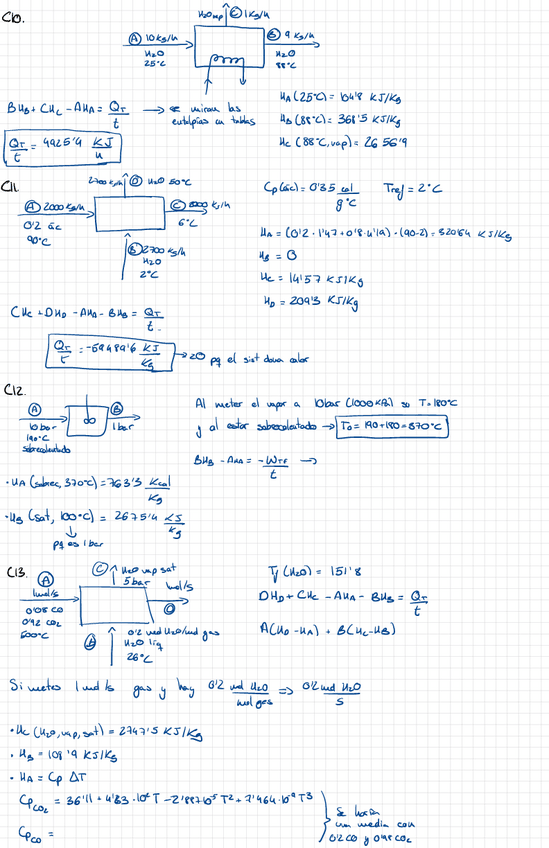 C10.
H2O vap Ⓒ 1 kg/h
Ⓐ 10 kg/h
H2O
25°C
Ⓑ 9 kg/h
H2O
88°C
BHB + CHC - AHA = QT/t → se miran las entalpías en tablas
QT/t = 4925'4 KJ/h
HA (25°C) = 104'8 KJ/Kg
HB (88°C) = 368'5 KJ/Kg
HC (88°C, vap) = 2656'9
C11.
2700 kg/h Ⓓ H2O 50°C
Ⓐ 2000 kg/h
0'2 ác
90°C
Ⓒ 2000 kg/h
6°C
Ⓑ 2700 kg/h
H2O
2°C
Cp (ác) = 0'35 cal/g°C Tref = 2°C
HA = (0'2 · 1'47 + 0'8 · 4'19) · (90-2) = 320'84 KJ/Kg
HB = 0
HC = 14'57 KJ/Kg
HD = 209'3 KJ/Kg
CHC + DHD - AHA - BHB = QT/t
QT/t = -59489'6 KJ/Kg → <0 pq el sist dona calor
C12
Ⓐ
10 bar
190°C
sobrecalentado
Ⓑ
1 bar
Al meter el vapor a 10bar (1000 KPa) su T = 180°C
y al estar sobrecalentado → T0 = 190 + 180 = 370°C
BHB - AHA = -WTF/t →
· HA (sobrec, 370°C) = 763'3 Kcal/Kg
· HB (sat, 100°C) = 2675'4 KJ/Kg
↓
pq es 1 bar
C13.
Ⓒ H2O vap sat
5 bar
Ⓐ
1mol/s
0'08 CO
0'92 CO2
500°C
mol/s
Ⓓ
Ⓑ 0'2 mol H2O/mol gas
H2O liq
26°C
Tf (H2O) = 151'8
DHD + CHC - AHA - BHB = QT/t
A(HD - HA) + B(HC - HB)
Si metes 1 mol/s gas y hay 0'2 mol H2O/mol gas ⇒ 0'2 mol H2O/s
· HC (H2O, vap, sat) = 2747'5 KJ/Kg
· HB = 108'9 KJ/Kg
· HA = Cp ΔT
CpCO2 = 36'11 + 4'83 · 10-2 T - 2'887·10-5 T2 + 7'464·10-9 T3
CpCO =
se haría
una media con
0'2 CO y 0'98 CO2